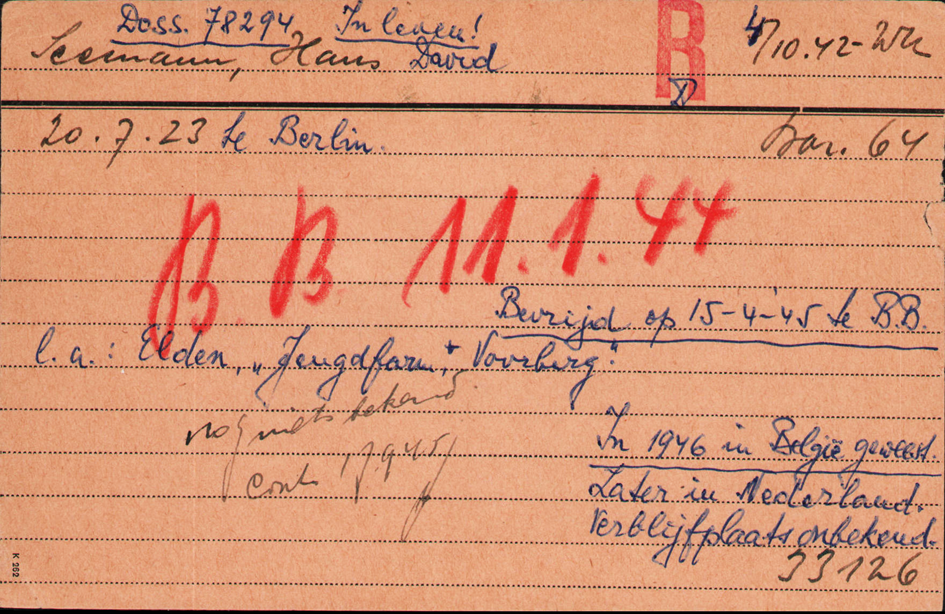 Doss. 78294. In leven! R 4/10.42-Wk
Seemann, Hans David
20.7.23 te Berlin. Bar. 64
B.B. 11.1.44
Bevrijd op 15-4-45 te B.B.
l.a.: Elden, "Jeugdfarm, 't Voorburg."
nog niets bekend
Conto 17.9.45
In 1946 in België geweest.
Later in Nederland.
Verblijfplaats onbekend.
33126
K 262